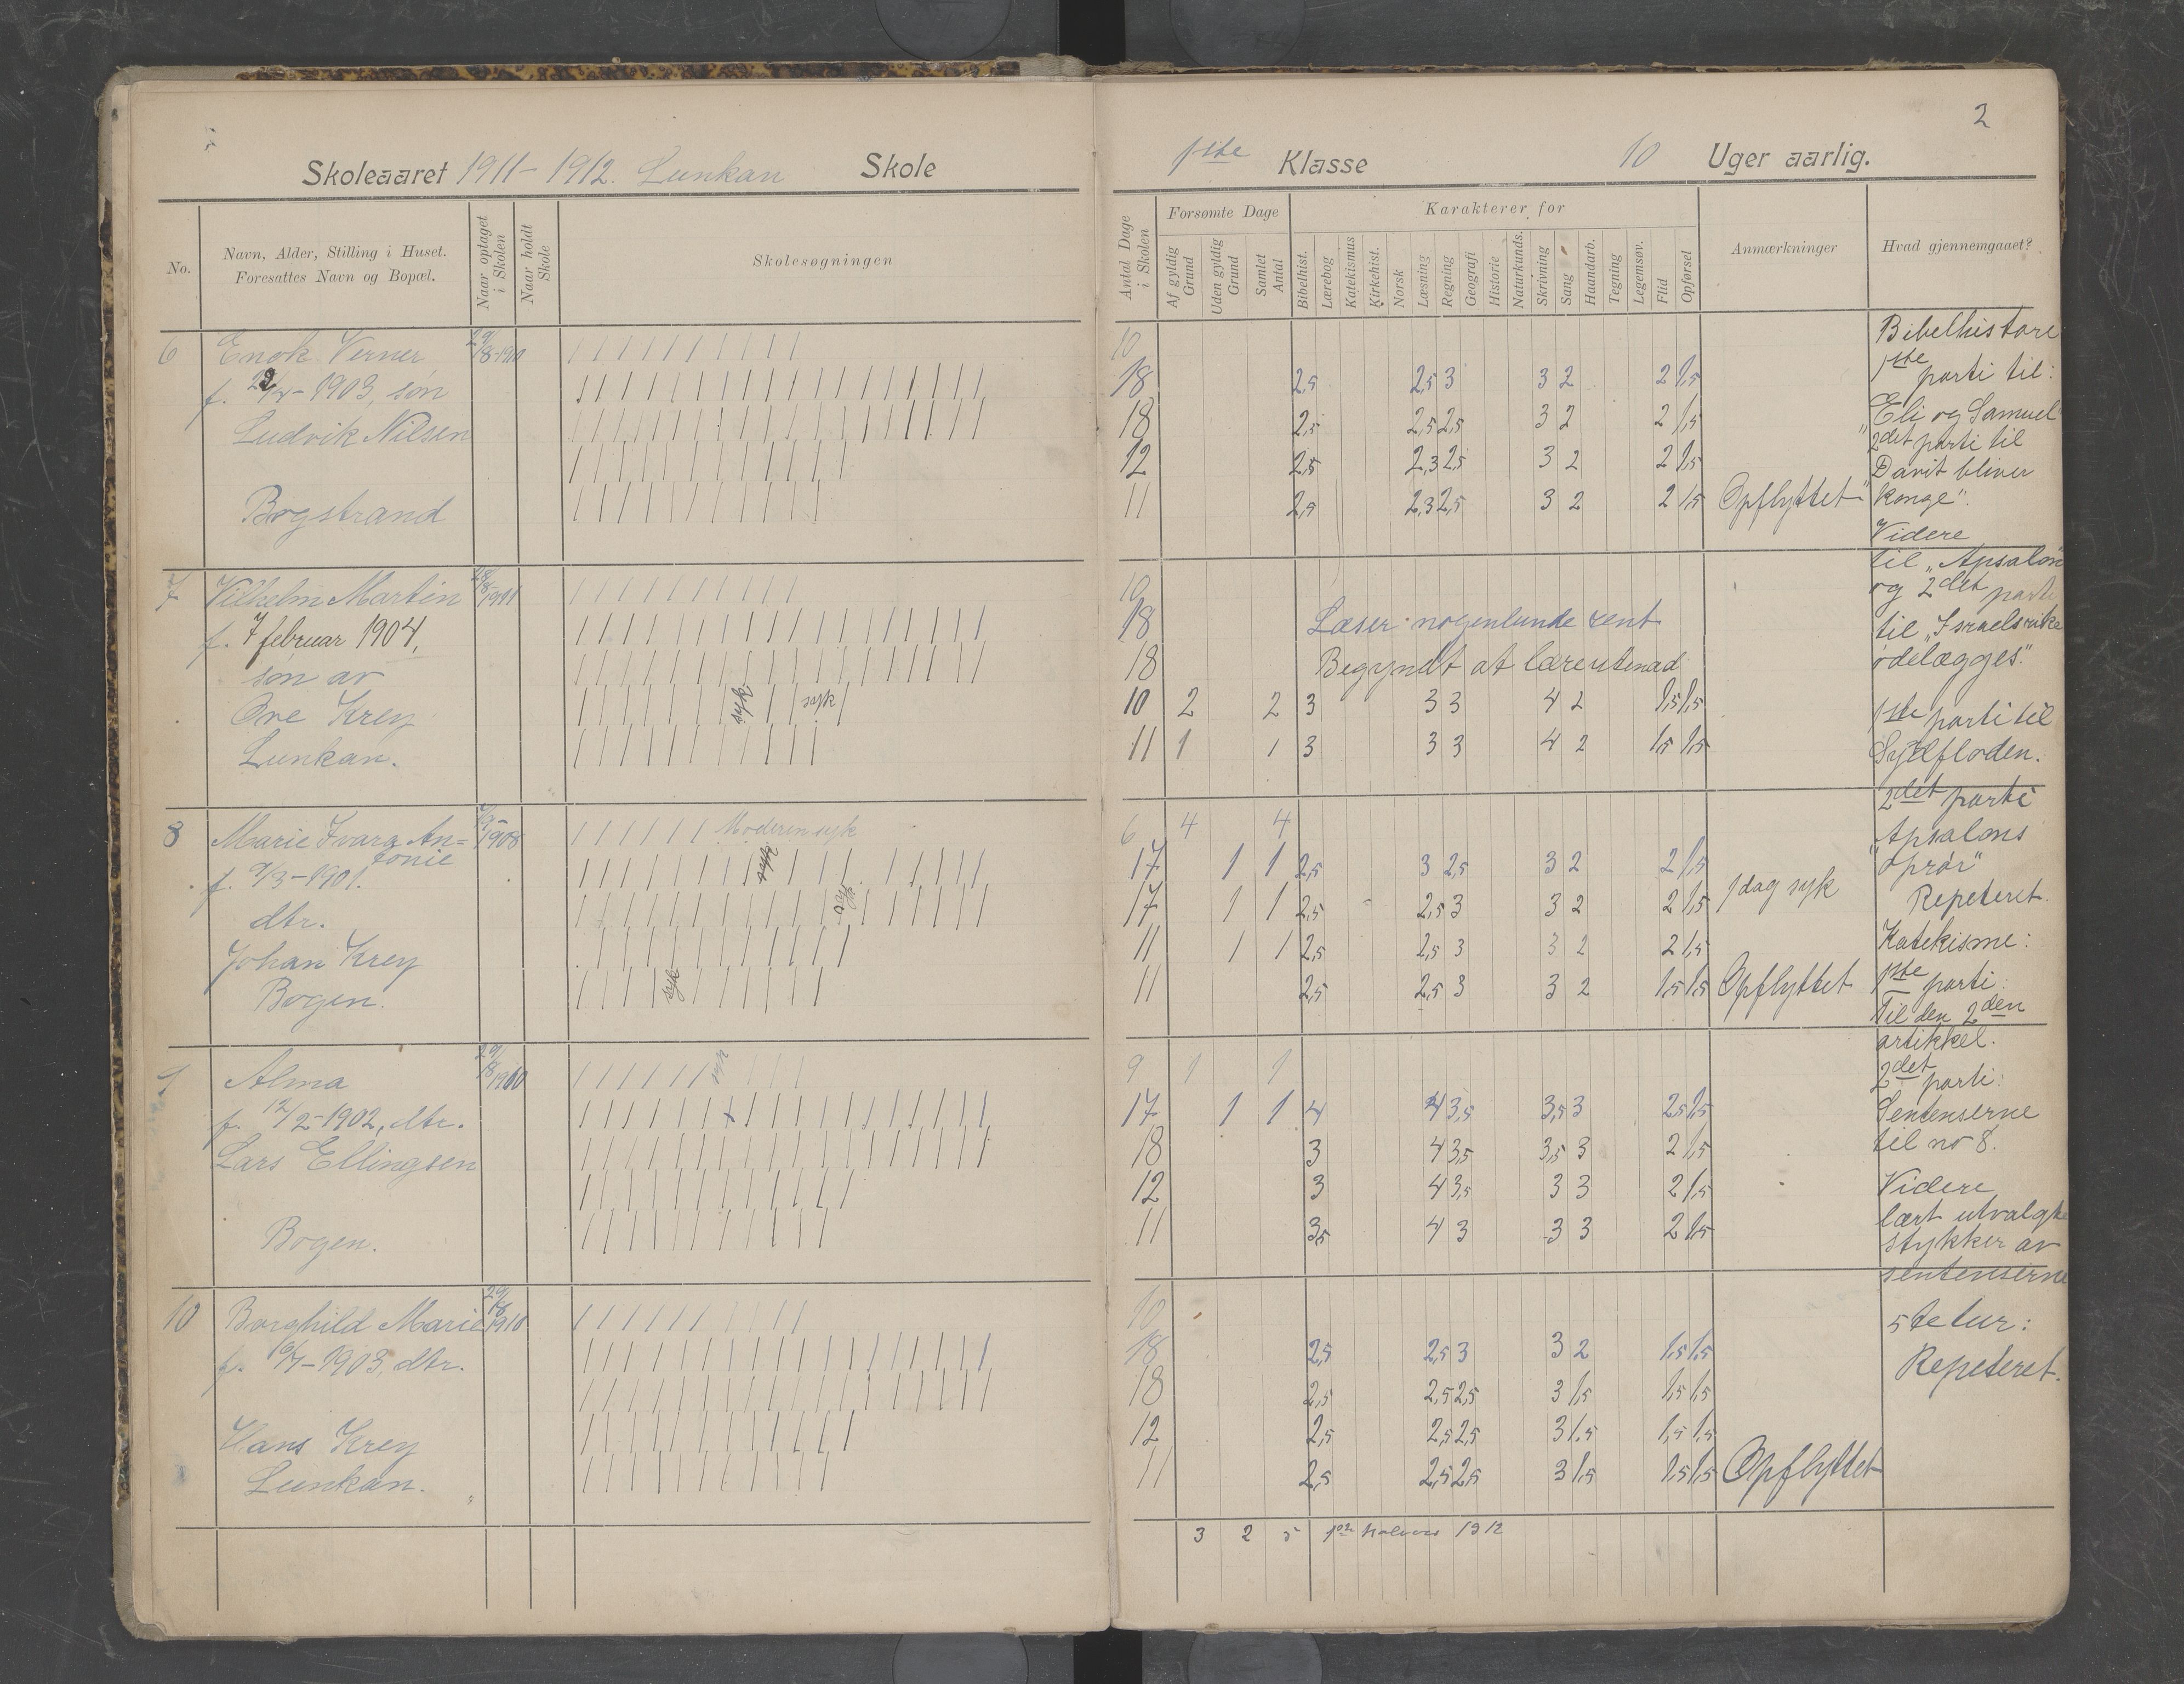 2
Skoleaaret 1911-1912. Lunkan Skole
1ste Klasse 10 Uger aarlig.
No.
Navn, Alder, Stilling i Huset.
Foresattes Navn og Bopæl.
Naar optaget i Skolen
Naar holdt Skole
Skolesøgningen
Antal Dage i Skolen
Forsømte Dage
Af gyldig Grund
Uden gyldig Grund
Samlet Antal
Karakterer for
Bibelhist.
Lærebog
Katekismus
Kirkehist.
Norsk
Læsning
Regning
Geografi
Historie
Naturkunds.
Skrivning
Sang
Haandarb.
Tegning
Legemsøv.
Flid
Opførsel
Anmærkninger
Hvad gjennemgaaet?
6 Enok Verner 29/8-1910
f. 1903, søn
Ludvik Nilsen
Bogstrand
10
18 2,5 2,5 3 3 2 2 1,5
18 2,5 2,5 2,5 3 2 2 1,5
12 2,5 2,3 2,5 3 2 2 1,5
11 2,5 2,3 2,5 3 2 2 1,5 Opflyttet
7 Vilhelm Martin 28/8-1911
f. 7 februar 1904,
søn av
Ove Krey
Lunkan.
syk syk
10
18 Læser nogenlunde rent
18 Begyndt at lære utenad
10 2 2 3 3 3 4 2 1,5 1,5
11 1 1 3 3 3 4 2 1,5 1,5
8 Marie Ivara An=
tonie
1908
f. 9/3-1901.
dtr.
Johan Krey
Bogen.
Moderen syk
syk
syk
syk
6 4 4
17 1 1 2,5 3 2,5 3 2 2 1,5
17 1 1 2,5 2,5 3 3 2 2 1,5 1 dag syk
11 1 1 2,5 2,5 3 3 2 2 1,5
11 2,5 2,5 3 3 2 1,5 1,5 Opflyttet
Alma 29/8 1910
f. 12/2-1902, dtr.
Lars Ellingsen
Bogen.
syk
9 1 1
17 1 1 4 4 3,5 3,5 3 2,5 1,5
18 3 4 3,5 3,5 3 2 1,5
12 3 4 3,5 3 3 2 1,5
11 3,5 4 3 3 3 2 1,5
10 Borghild Marie 29/8 1910
f. 16/7-1903, dtr.
Hans Krey
Lunkan.
10
18 2,5 2,5 3 3 2 1,5 1,5
18 2,5 2,5 2,5 3 1,5 1,5 1,5
12 2,5 2,5 2,5 3 1,5 1,5 1,5
11 2,5 2,5 2,5 3 1,5 1,5 1,5 Opflyttet
3 2 5 1912
Bibelhistore
1ste parti til:
"Eli og Samuel"
2det parti til
"Davit bliver
konge".
Videre
til "Apsalon"
og 2det parti
til "Israelsrike
ødelægges".
1ste parti til
Syndfloden.
2det parti
"Apsalons
oprør"
Repeteret.
Katekisme:
1ste parti:
Til den 2den
artikkel.
2det parti:
Sentenserne
til no 8.
Videre
lært utvalgte
stykker av
sentenserne
5te tur:
Repeteret.